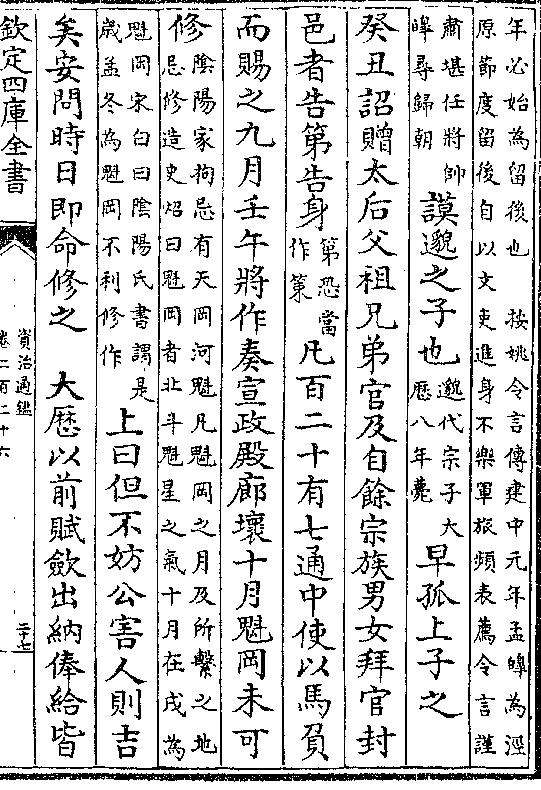 年必始為留後也　按姚令言傳建中元年孟皥為涇
原節度留後自以文吏進身不樂軍旅頻表薦令言謹
肅堪任將帥
皥尋歸朝
謨邈之子也
邈代宗子大
歷八年薨
早孤上子之
癸丑詔贈太后父祖兄弟官及自餘宗族男女拜官封
邑者告第告身
第恐當
作策
凡百二十有七通中使以馬負
而賜之九月壬午將作奏宣政殿廊壞十月魁岡未可
修
陰陽家拘忌有天岡河魁凡魁岡之月及所繫之地
忌修造史炤曰魁岡者北斗魁星之氣十月在戌為
魁岡宋白曰隂陽氏書謂是
歲孟冬為魁岡不利修作
上曰但不妨公害人則吉
矣安問時日即命修之　大歷以前賦斂出納俸給皆
欽定四庫全書
資治通鑑
卷二百二十六
二十七